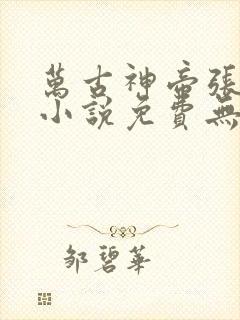 萬古神帝張
小說免費無
鄒碧華